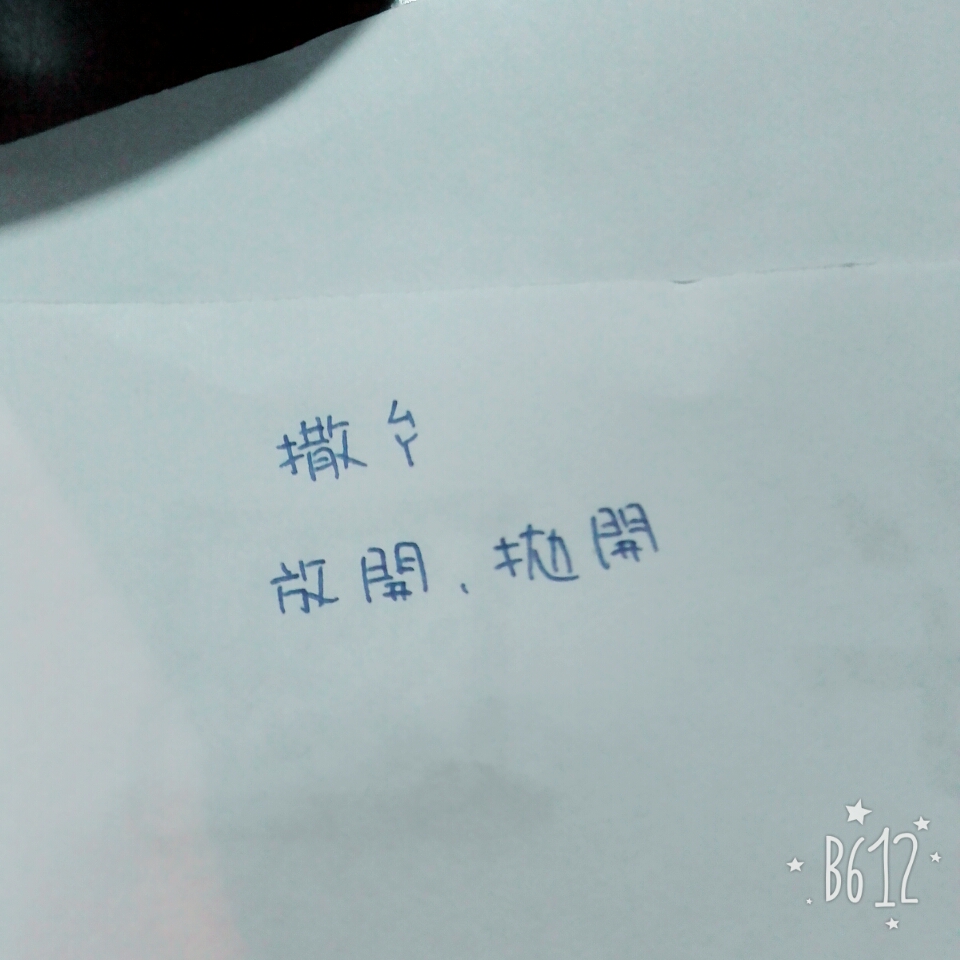 撒ㄙㄚ
放開、拋開
B612